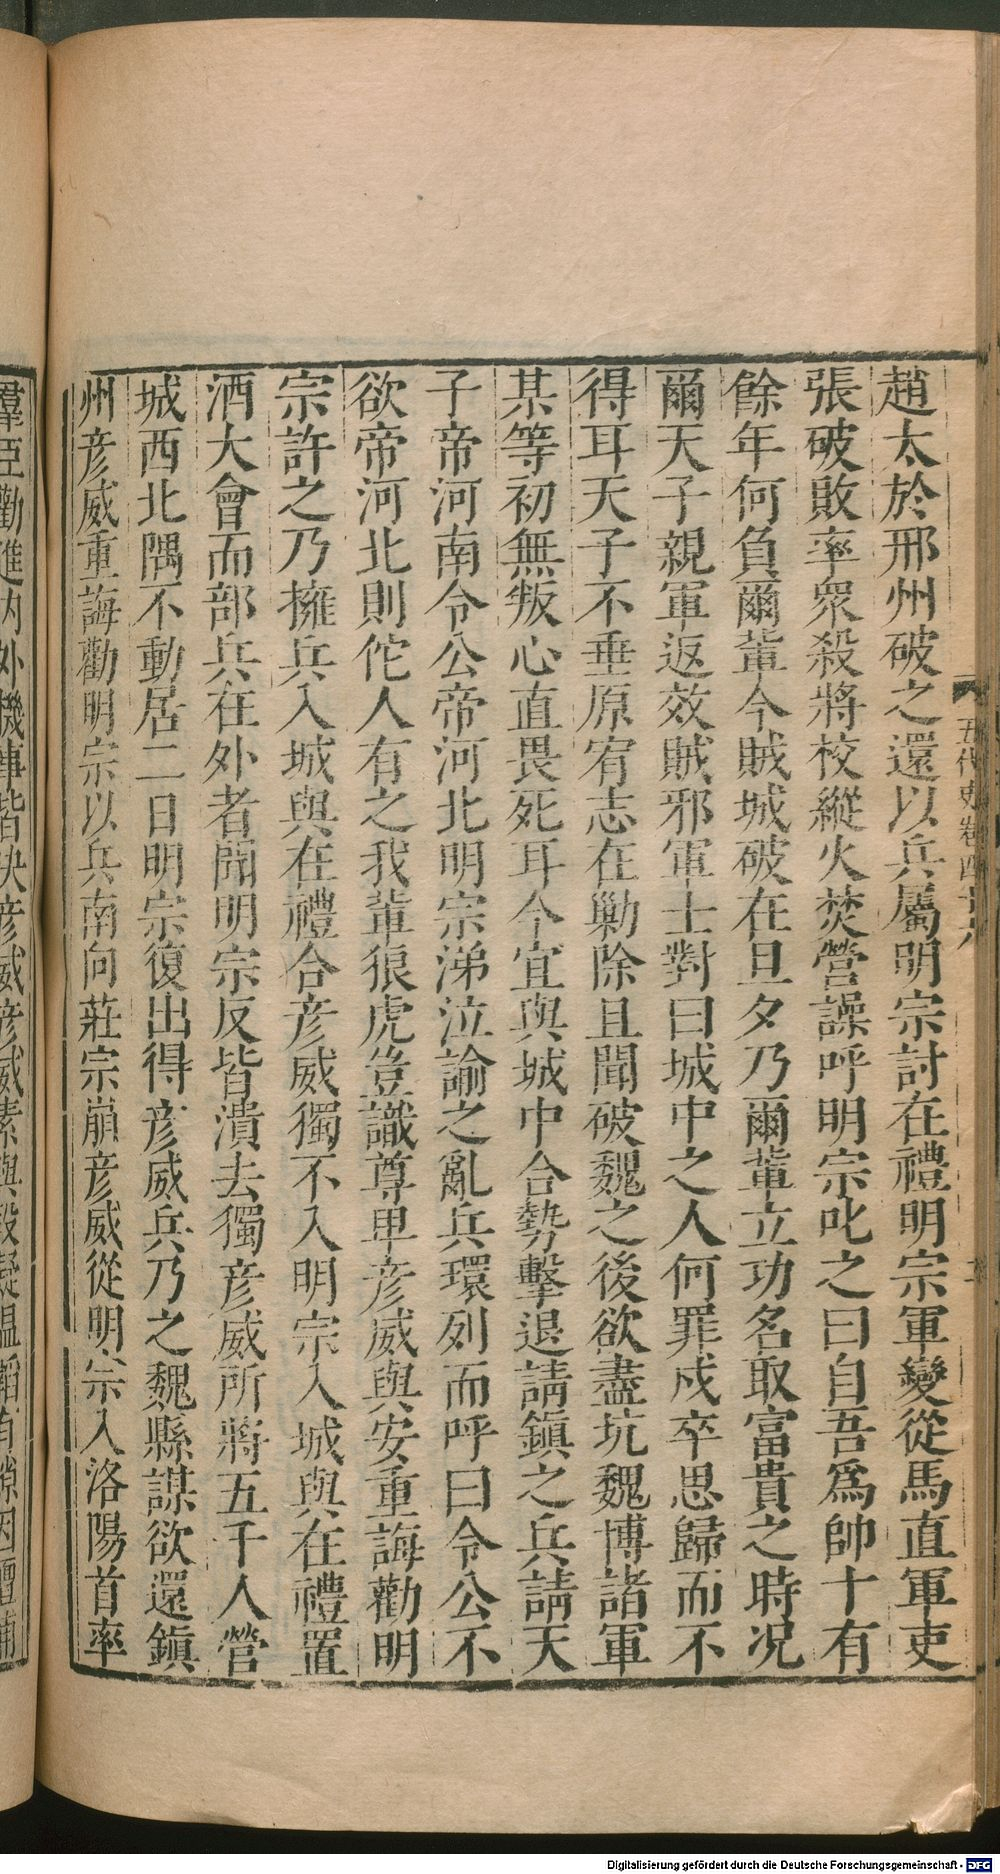 趙太於邢州破之還以兵屬明宗討在禮明宗軍變從馬直軍吏
張破敗率眾殺將校縱火焚營譟呼明宗叱之曰自吾爲帥十有
餘年何負爾輩今賊城破在旦夕乃爾輩立功名取富貴之時况
爾天子親軍返效賊邪軍士對曰城中之人何罪戍卒思歸而不
得耳天子不垂原宥志在勦除且聞破魏之後欲盡坑魏博諸軍
某等初無叛心直畏死耳今宜與城中合勢擊退諸鎮之兵請天
子帝河南令公帝河北明宗涕泣諭之亂兵環列而呼曰令公不
欲帝河北則佗人有之我輩狼虎豈識尊卑彥威與安重誨勸明
宗許之乃擁兵入城與在禮合彥威獨不入明宗入城與在禮置
酒大會而部兵在外者聞明宗反皆潰去獨彥威所將五千人營
城西北隅不動居二日明宗復出得彥威兵乃之魏縣謀欲還鎮
州彥威重誨勸明宗以兵南向莊宗崩彥威從明宗入洛陽首率
羣臣勸進内外機事皆決彥威彥威素與段凝溫韜有隙因擅捕
五代史卷四十六
Digitalisierung gefördert durch die Deutsche Forschungsgemeinschaft - DFG